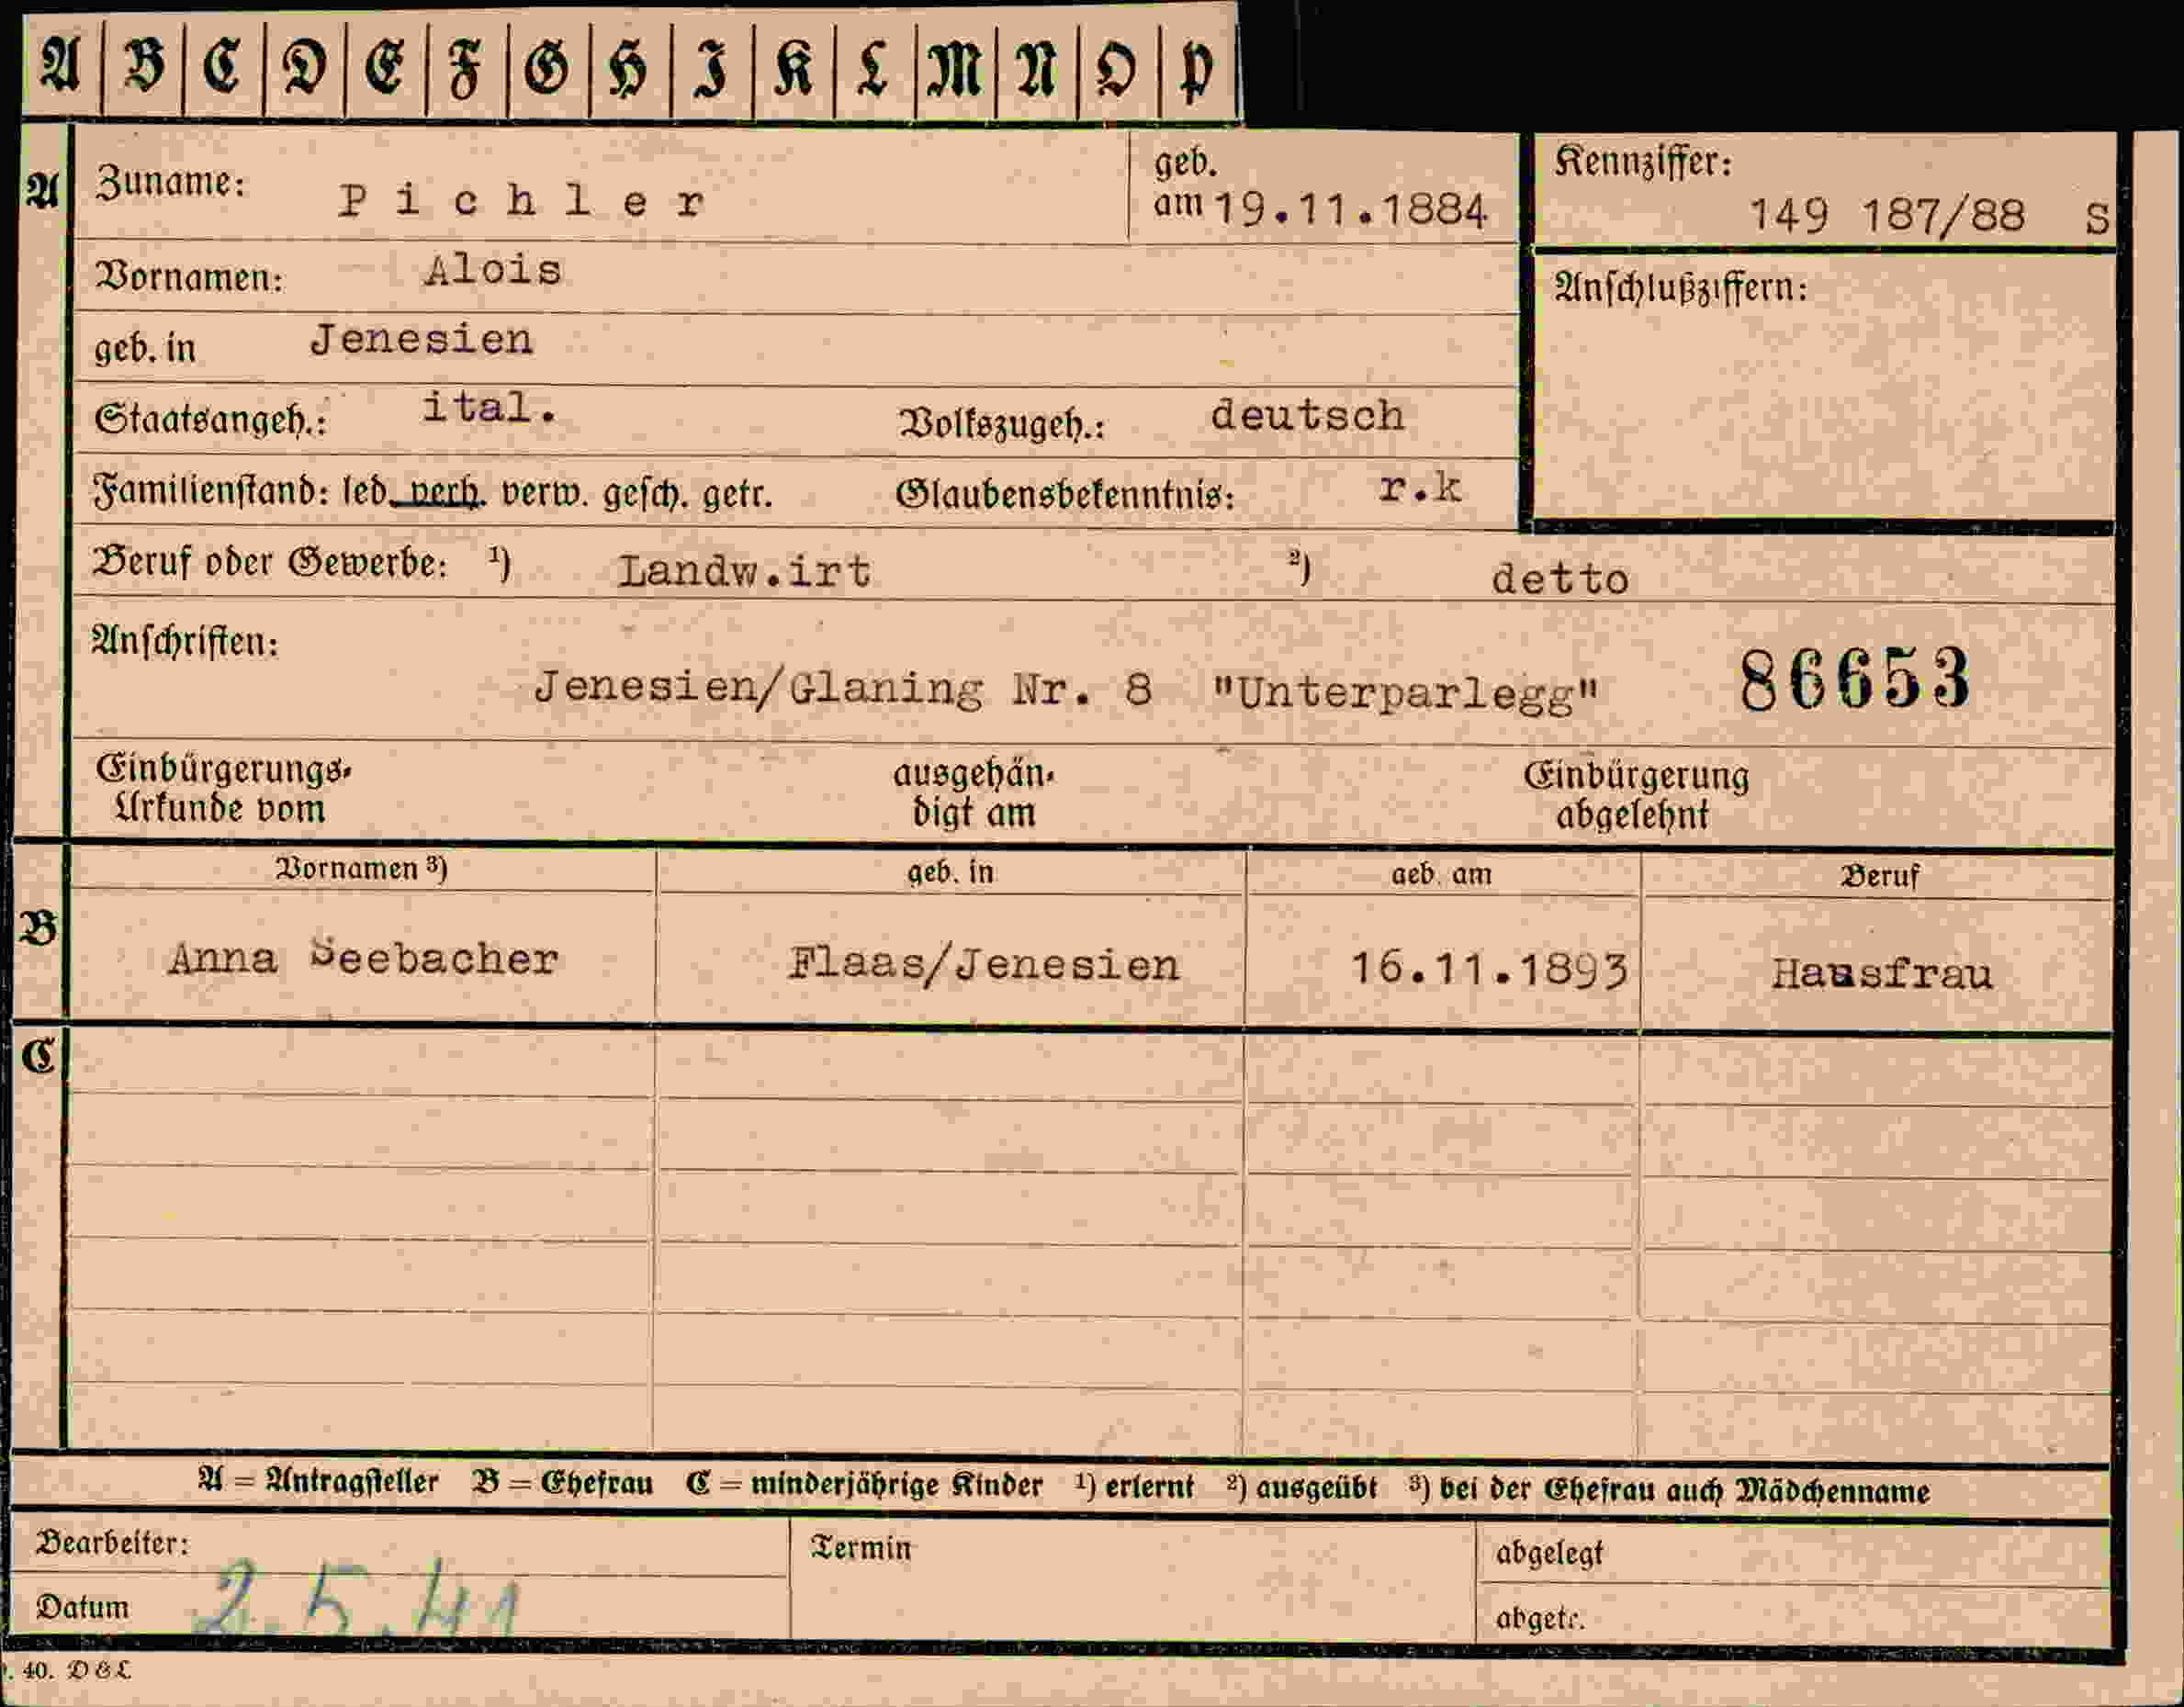 A B C D E F G H I K L M N O P
A Zuname: Pichler geb. am 19.11.1884 Kennziffer: 149 187/88 S
Vornamen: Alois Anschlußziffern:
geb. in Jenesien
Staatsangeh.: ital. Volkszugeh.: deutsch
Familienstand: led. verh. verw. gesch. getr. Glaubensbekenntnis: r.k
Beruf oder Gewerbe: ¹) Landw.irt ²) detto
Anschriften:
Jenesien/Glaning Nr. 8 "Unterparlegg" 86653
Einbürgerungs- ausgehän- Einbürgerung
Urkunde vom digt am abgelehnt
Vornamen ³) geb. in geb. am Beruf
B Anna Seebacher Flaas/Jenesien 16.11.1893 Hausfrau
C
A = Antragsteller B = Ehefrau C = minderjährige Kinder ¹) erlernt ²) ausgeübt ³) bei der Ehefrau auch Mädchenname
Bearbeiter: Termin abgelegt
Datum 2.5.41 abgetr.
. 40. D & L